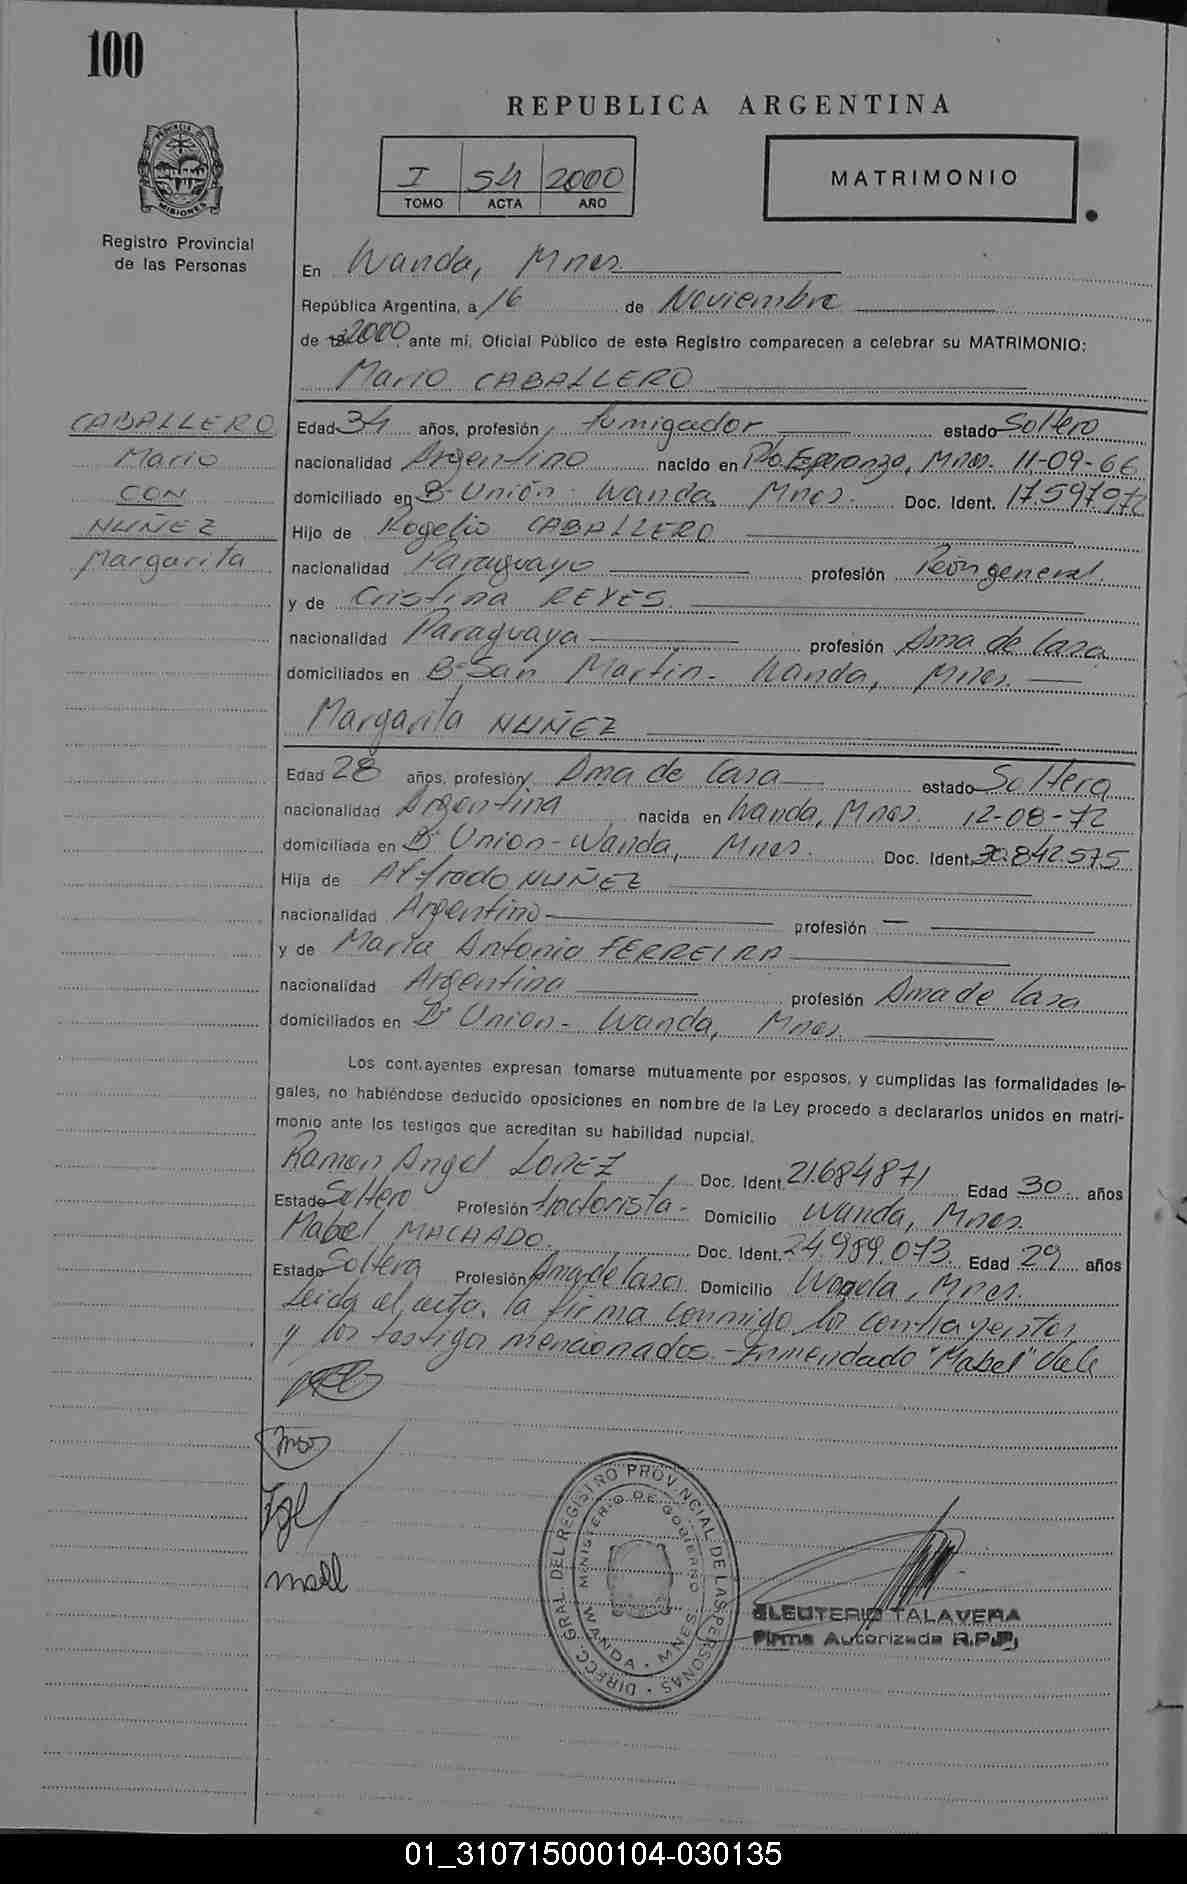 100
REPUBLICA ARGENTINA
I 54 2000
TOMO ACTA AÑO
MATRIMONIO
PROVINCIA DE MISIONES
Registro Provincial
de las Personas
En Wanda, Mnes.
República Argentina, a 16 de Noviembre
de 2000, ante mí, Oficial Público de este Registro comparecen a celebrar su MATRIMONIO:
Mario CABALLERO
CABALLERO
Mario
CON
NUÑEZ
Margarita
Edad 34 años, profesión fumigador estado Soltero
nacionalidad Argentino nacido en Pto. Esperanza, Mnes. 11-09-66
domiciliado en Bº Unión - Wanda, Mnes. Doc. Ident. 17.597.972
Hijo de Rogelio CABALLERO
nacionalidad Paraguayo profesión Peón general
y de Cristina REYES
nacionalidad Paraguaya profesión Ama de Casa
domiciliados en Bº San Martin - Wanda, Mnes.
Margarita NUÑEZ
Edad 28 años, profesión Ama de Casa estado Soltera
nacionalidad Argentina nacida en Wanda, Mnes. 12-08-72
domiciliada en Bº Union - Wanda, Mnes. Doc. Ident. 30.842.575
Hija de Alfredo NUÑEZ
nacionalidad Argentino profesión —
y de María Antonia FERREIRA
nacionalidad Argentina profesión Ama de Casa
domiciliados en Bº Union - Wanda, Mnes.
Los contrayentes expresan tomarse mutuamente por esposos, y cumplidas las formalidades le-
gales, no habiéndose deducido oposiciones en nombre de la Ley procedo a declararlos unidos en matri-
monio ante los testigos que acreditan su habilidad nupcial.
Ramon Angel LOPEZ Doc. Ident. 21.684.871 Edad 30 años
Estado Soltero Profesión tractorista - Domicilio Wanda, Mnes.
Mabel MACHADO Doc. Ident. 24.989.073 Edad 29 años
Estado Soltera Profesión Ama de Casa Domicilio Wanda, Mnes.
Leida el acta, la firma conmigo los contrayentes
y los testigos mencionados. - Enmendado "Mabel" Vale
DIRECC. GRAL. DEL REGISTRO PROVINCIAL DE LAS PERSONAS
MINISTERIO DE GOBIERNO
WANDA - MNES.
ELEUTERIO TALAVERA
Firma Autorizada R.P.P.
01_310715000104-030135